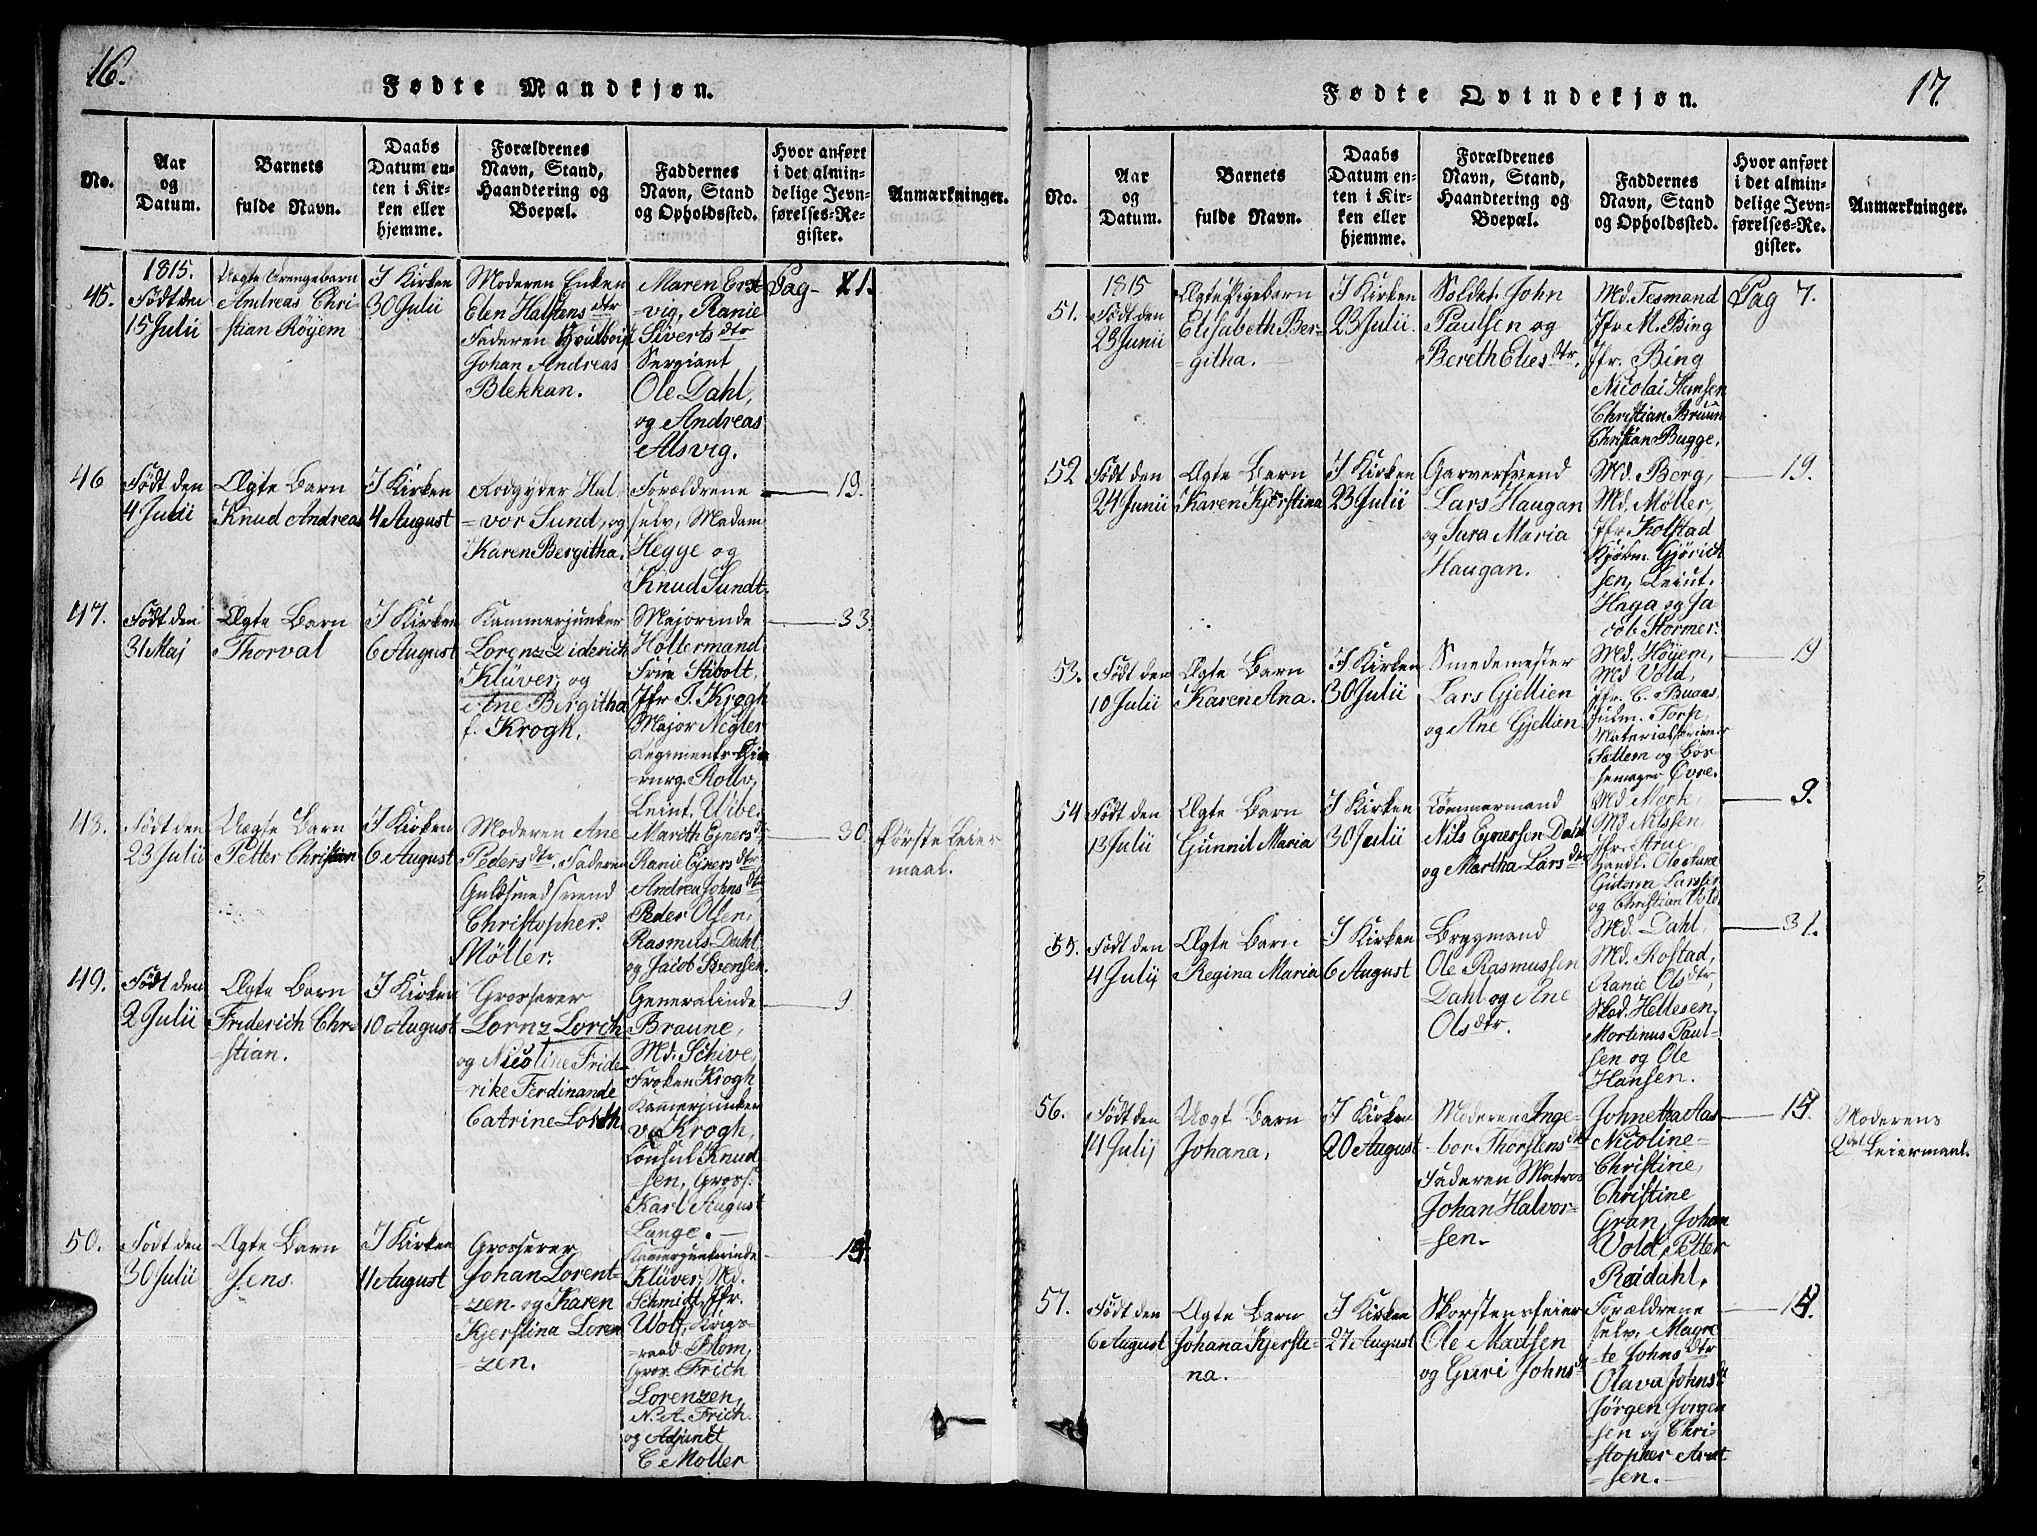 16.
Fødte Mandkjøn.
No.
Aar
og
Datum.
Barnets
fulde Navn.
Daabs
Datum en-
ten i Kir-
ken eller
hjemme.
Forældrenes
Navn, Stand,
Haandtering og
Boepæl.
Faddernes
Navn, Stand
og Opholdssted.
Hvor anført
i det almin-
delige Jevn-
førelses-Re-
gister.
Anmærkninger.
45.
1815.
Født den
15 Julii
Uægte Drengebarn
Andreas Chri-
stian Röyem
I Kirken
30 Julii
Moderen Enken
Elen Halstens dtr
Faderen
Johan Andreas
Blekkan.
Maren Erst
vig, Ranie
Siverts dtr
Sergiant
Ole Dahl,
og Andreas
Alsvig.
Pag - 21.
46
Født den
4 Julii
Ægte Barn
Knud Andreas
I Kirken
4 August
Rodgyder Hal-
-vor Sund, og
Karen Bergitha.
Forældrene
selv, Madam
Hegge og
Knud Sundt.
19.
47.
Født den
31 Maj
Ægte Barn
Thorval
I Kirken
6 August
Kammerjunker
Lorenz Diderich
Klüver, og
Ane Bergitha
f. Krogh.
Majorinde
Holtermand
Frue Stibolt,
Jfr T. Krogh
Major Negler
Regiments Chi-
-rurg. Rollo,
Leiut. Uibe.
33.
48.
Født den
23 Julii
Uægte Barn
Petter Christian
I Kirken
6 August
Moderen Ane
Peders dtr. Faderen
Guldsmedsvend
Christopher
Møller.
Marith Ejners dtr
Ranie Ejners dtr
Andrea Johns dtr
Peder Olsen,
Rasmus Dahl
og Jacob Sørensen.
30.
Første Leier
maal.
49.
Født den
2 Julii
Ægte Barn
Friderich Chr-
-stian.
I Kirken
10 August
Grosserer
Lornz Lorch
og Nicoline Fride
rike Ferdinande
Catrine Lorch.
Generalinde
Braune,
Md. Schive,
Frøken Krogh
Kammerjunker
v. Krogh,
Consul Knud
-sen, Gross.
Karl August
Lange.
9
50.
Født den
30 Julii
Ægte Barn
Jens.
I Kirken
11 August
Grosserer
Johan Lorent-
-zen og Karen
Kjerstina Loren
-zen.
Kamerjunkerinde
Klüver, Md.
Schmidt, Jfr.
Wolf, Krigs-
-raad Blom,
Gros. Frich
Lorenzen,
N. A. Frich.
og Adjunct
C. Møller
17.
Fødte Qvindekjøn.
No.
Aar
og
Datum.
Barnets
fulde Navn.
Daabs
Datum en-
ten i Kir-
ken eller
hjemme.
Forældrenes
Navn, Stand,
Haandtering og
Boepæl.
Faddernes
Navn, Stand
og Opholdssted.
Hvor anført
i det almin-
delige Jevn-
førelses-Re-
gister.
Anmærkninger.
51.
1815
Født den
23 Junii
Ægte Pigebarn
Elisabeth Ber-
-githa.
I Kirken
23 Julii
Soldt. John
Paulsen og
Bereth Elies dtr.
Md. Tesmand
Jfr. M. Bing
Jfr. Bing
Nicolai Hansen
Christian Bruun
Christian Bugge.
Pag 7.
52
Født den
24 Junii
Ægte Barn
Karen Kjerstina
I Kirken
23 Julii
Garversvend
Lars Haugan
og Sara Maria
Haugan.
Md. Berg,
Md. Møller,
Jfr Kolstad
Kjøbm. Gjørich
sen, Leiut.
Haga og Ja
cob Stormer.
19.
53.
Født den
10 Julii
Ægte Barn
Karen Ana.
I Kirken
30 Julii
Smedemester
Lars Gjellien
og Ane Gjellien
Md. Høyem,
Md Vold,
Jfr. C. Buaas
Torp,
Materialskriver
Sættem og Bøs-
-semager Øvre.
19
54
Født den
13 Julii
Ægte Barn
Gunnil Maria
I Kirken
30 Julii
Tømmermand
Nils Ejnersen Dahl
og Martha Lars dtr
Md Mork,
Md Nilssen,
Jfr. Strue
Handl. Ole Aune
Larsen
og Christian Vold
9.
55.
Født den
4 Julij
Ægte Barn
Regina Maria
I Kirken
6 August
Brygmand
Ole Rasmussen
Dahl og Ane
Ols dtr.
Md. Dahl,
Md. Rostad,
Ranie Ols dtr,
Skod. Hellesen,
Mortinus Paul-
sen og Ole
Hansen.
31.
56.
Født den
14 Julij
Uægt Barn
Johana,
I Kirken
20 August
Moderen Inge-
-bor Thorstens dtr
Faderen Matros
Johan Halvor-
-sen.
Johnetta Aas
Nicoline
Christine,
Christine
Gran, Johan
Vold, Petter
Reidahl,
Moderens
2det Leiermaal.
57.
Født den
6 August
Ægte Barn
Johana Kjersti-
na.
I Kirken
27 August
Skorstensfeier
Ole Madsen
og Guri Johns dtr
Forældrene
selv, Magre
-te Johns dtr
Olava Johns dtr
Jørgen Jørgen
sen og Chri-
stopher Arnt
-sen.